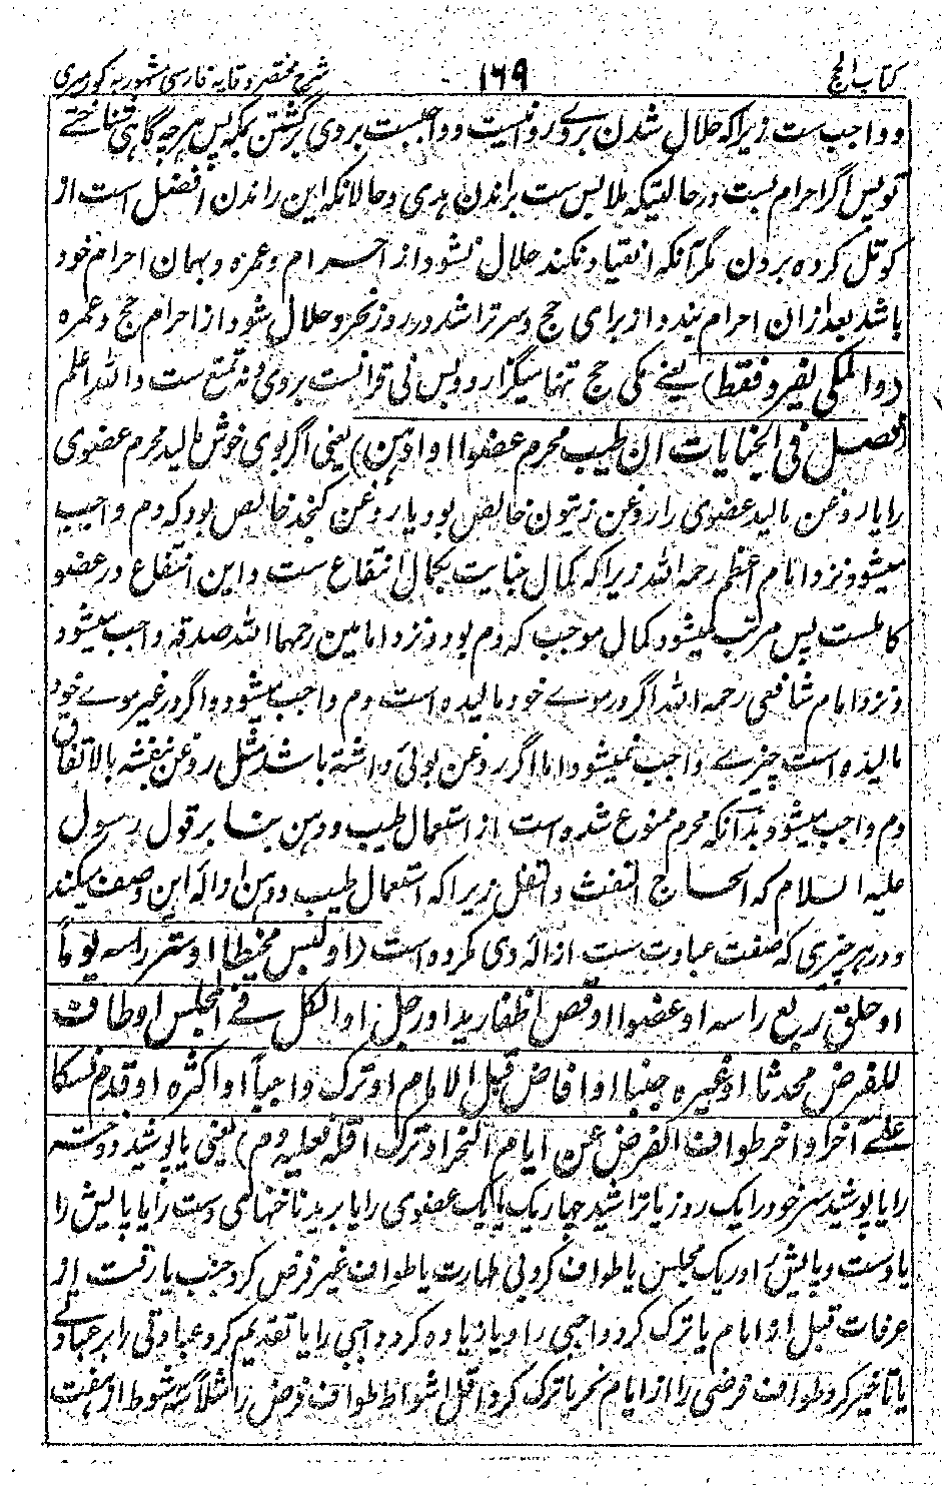 کتاب الحج ۱۶۹ شرح مختصر وقایه فارسی مشهور به کورمیری
و واجب ست زیراکه حلال شدن بروے روانیست و واجبست بروی برگشتن بمکه پس هرچه گاهی شناختے
تو پس اگر احرام بست در حالتیکه ملابس ست براندن هدی و حالانکه این راندن افضل است از
کوتل کرده بردن مگر آنکه انقیاد نکند حلال نشود از احرام وعمره و بهمان احرام خود
باشد بعد ازان احرام بندد از برای حج و سر تراشد در روز نحر و حلال شود از احرام حج و عمره
(والمکی یفرد فقط) یعنے مکی حج تنها میگزارد و پس نی قرانست بروی و نه تمتع ست والله اعلم
فصل فی الجنایات ان طیب محرم عضوا او ادهن) یعنی اگر بوی خوش مالید محرم عضوی
را یا روغن مالید عضوی را روغن زیتون خالص بود یا روغن کنجد خالص بود که دم واجب
میشود نزد امام اعظم رحمه الله زیراکه کمال جنایت بکمال انتفاع ست و این انتفاع در عضو
کاملست پس مرتب میشود کمال موجب که دم بود و نزد امامین رحمهما الله صدقه واجب میشود
و نزد امام شافعی رحمه الله اگر در موے خود مالیده است دم واجب میشود و اگر در غیر موے خود
مالیده است چیزے واجب نمیشود اما اگر روغن بوئی داشته باشد مثل روغن بنفشه بالاتفاق
دم واجب میشود بدآنکه محرم ممنوع شده است از استعمال طیب و دهن بنا بر قول رسول
علیه السلام که الحاج التفث والتفل زیراکه استعمال طیب و دهن ازاله این وصف میکند
و در هر چیزی که صفت عبادت ست ازاله وی مکروه است (او لبس مخیطا او ستر راسه یوماً
او حلق ربع راسه او عضوا او قص اظفار ید او رجل او الکل فے المجلس او طاف
للفرض محدثا او غیره جنبا او افاض قبل الامام او ترک واجباً او اکثره او قدم نسکا
علے آخر او اخر طواف الفرض عن ایام النحر او ترک اقله فعلیه دم) یعنی یا پوشید دوخته
را یا پوشید سر خود را یک روز یا تراشید چاریک یا یک عضوی را یا برید ناخنهای دست را یا پایش را
یا دست و پایش را در یک مجلس یا طواف کرد بی طهارت یا طواف غیر فرض کرد جنب یا رفت از
عرفات قبل از امام یا ترک کرد واجبی را و یا زیاده کرد واجبی را یا تقدیم کرد عبادتی را بر عبادتے
یا تاخیر کرد طواف فرضی را از ایام نحر یا ترک کرد اقل اشواط طواف فرض را مثلاً سه شوط از هفت